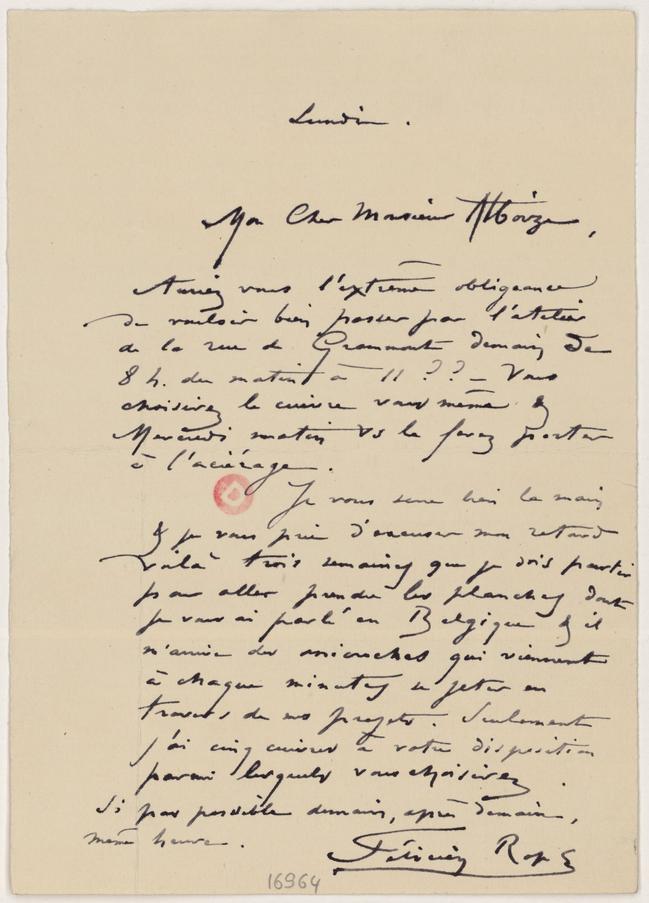 Lundi .
Mon Cher Monsieur Alboize,
Auriez vous l'extrême obligeance
de vouloir bien passer par l'atelier
de la rue de Grammont demain de
8 h. du matin à 11 ?? _ Vous
choisirez le cuivre vous même &
Mercredi matin vs le ferez porter
à l'aciérage.
Je vous serre bien la main
& je vous prie d'excuser mon retard
voilà trois semaines que je dois partir
pour aller prendre les planches dont
je vous ai parlé en Belgique & il
m'arrive des anicroches qui viennent
à chaque minutes se jeter en
travers de mes projets. Seulement
j'ai cinq cuivres à votre disposition
parmi lesquels vous choisirez .
Si pas possible demain, après demain,
même heure .
Félicien Rops
16964